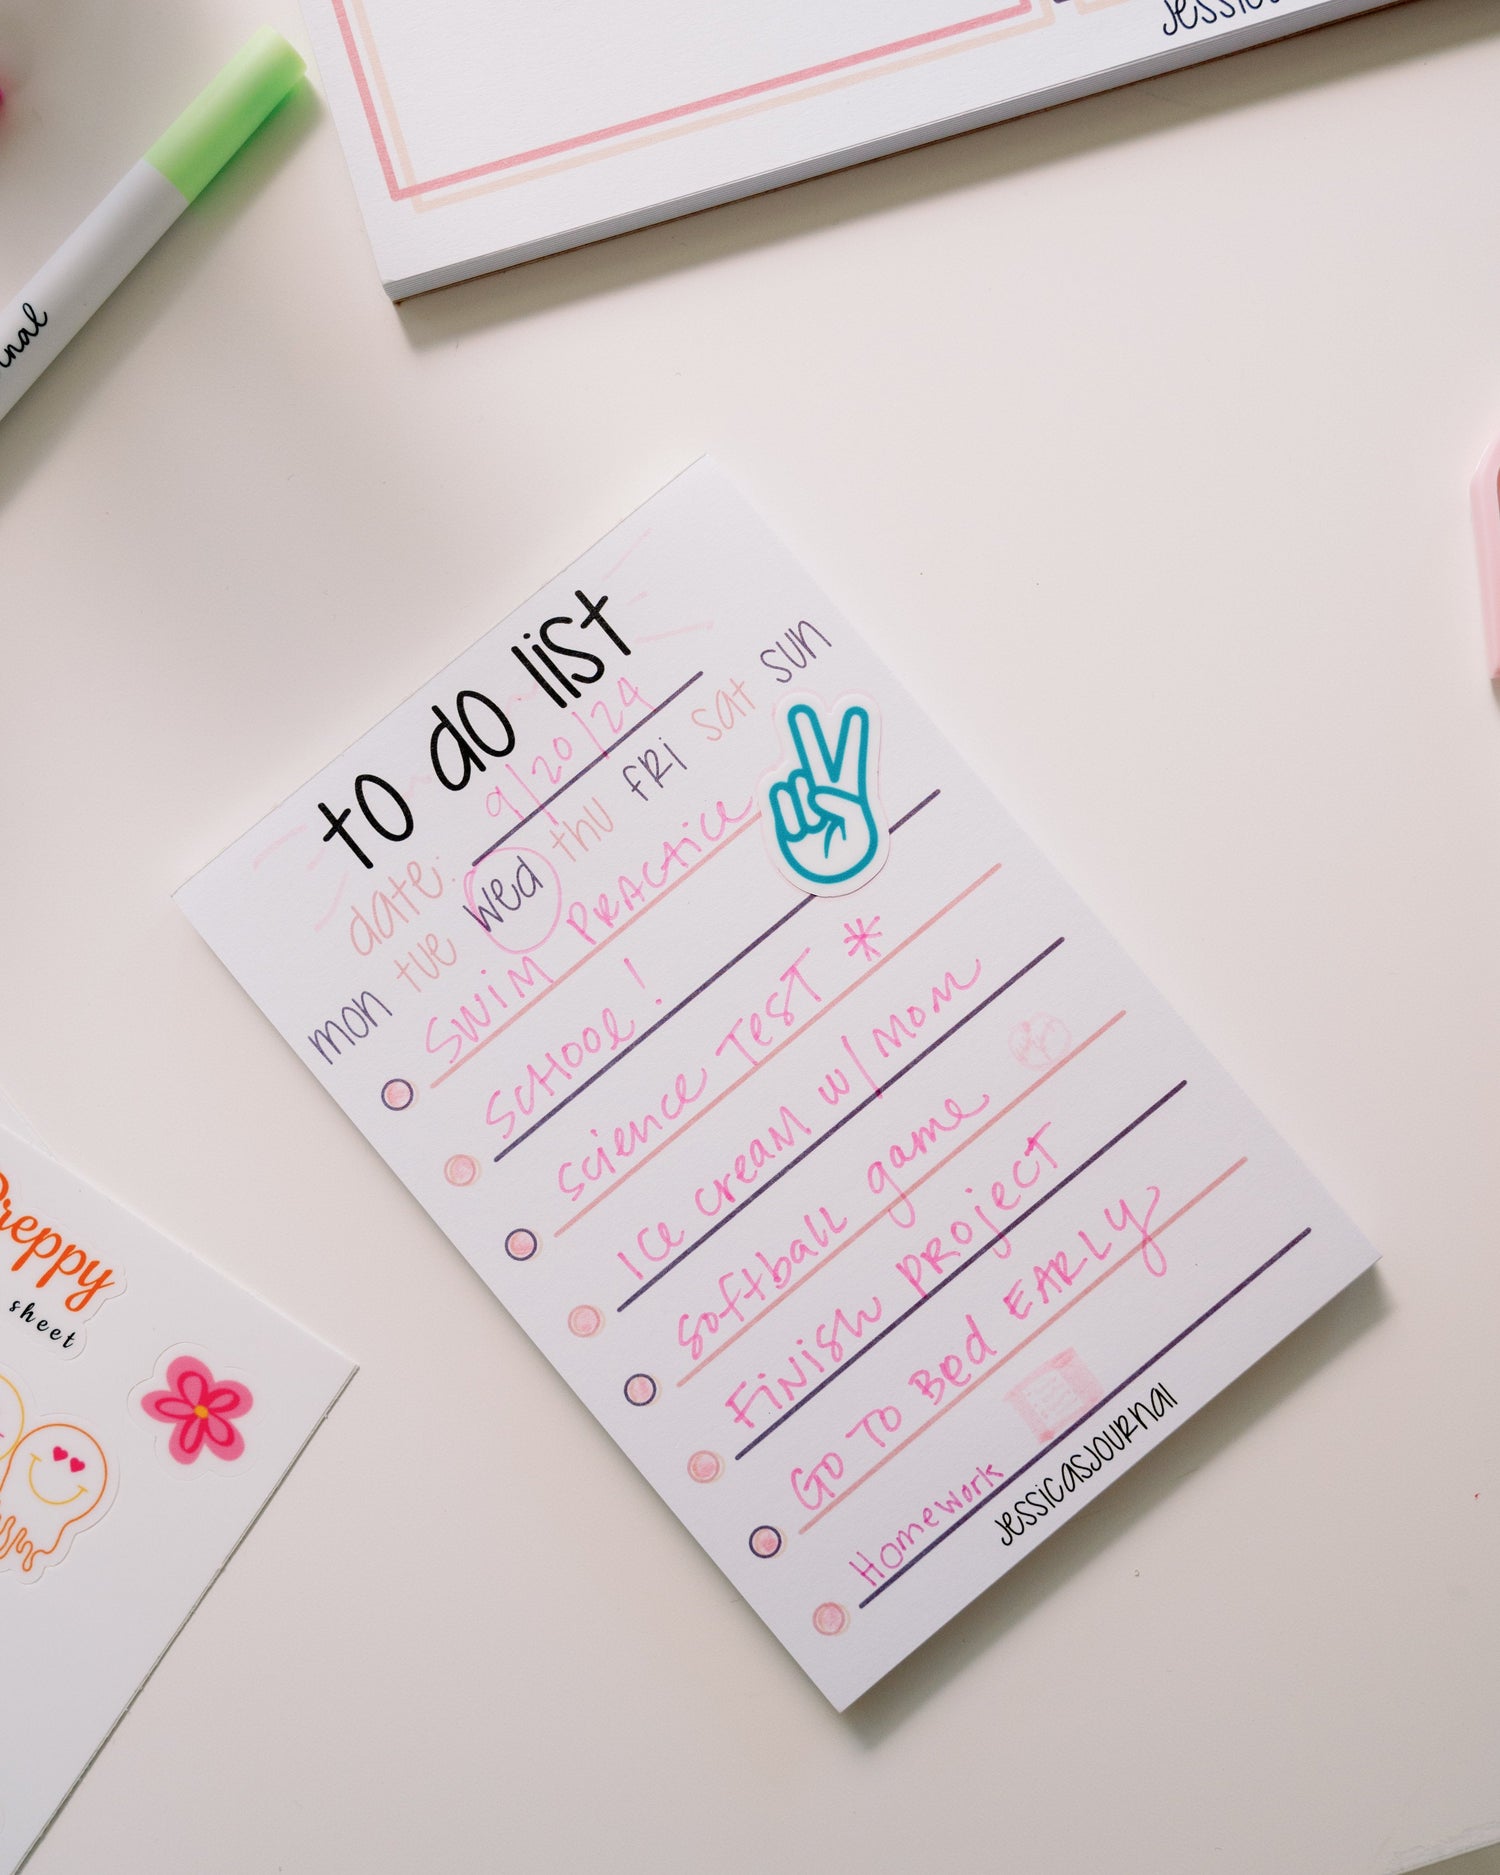 to do list
date: 9/20/24
mon tue wed thu fri sat sun
Swim Practice
School!
Science Test *
Ice cream w/ mom
Softball game
Finish Project
Go to Bed EARLY
Homework
jessicasjournal
Preppy
sheet